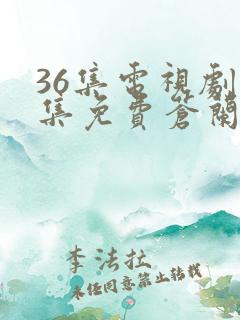 36集电視劇
集免費篸閑
李法拉
未经同意禁止转载